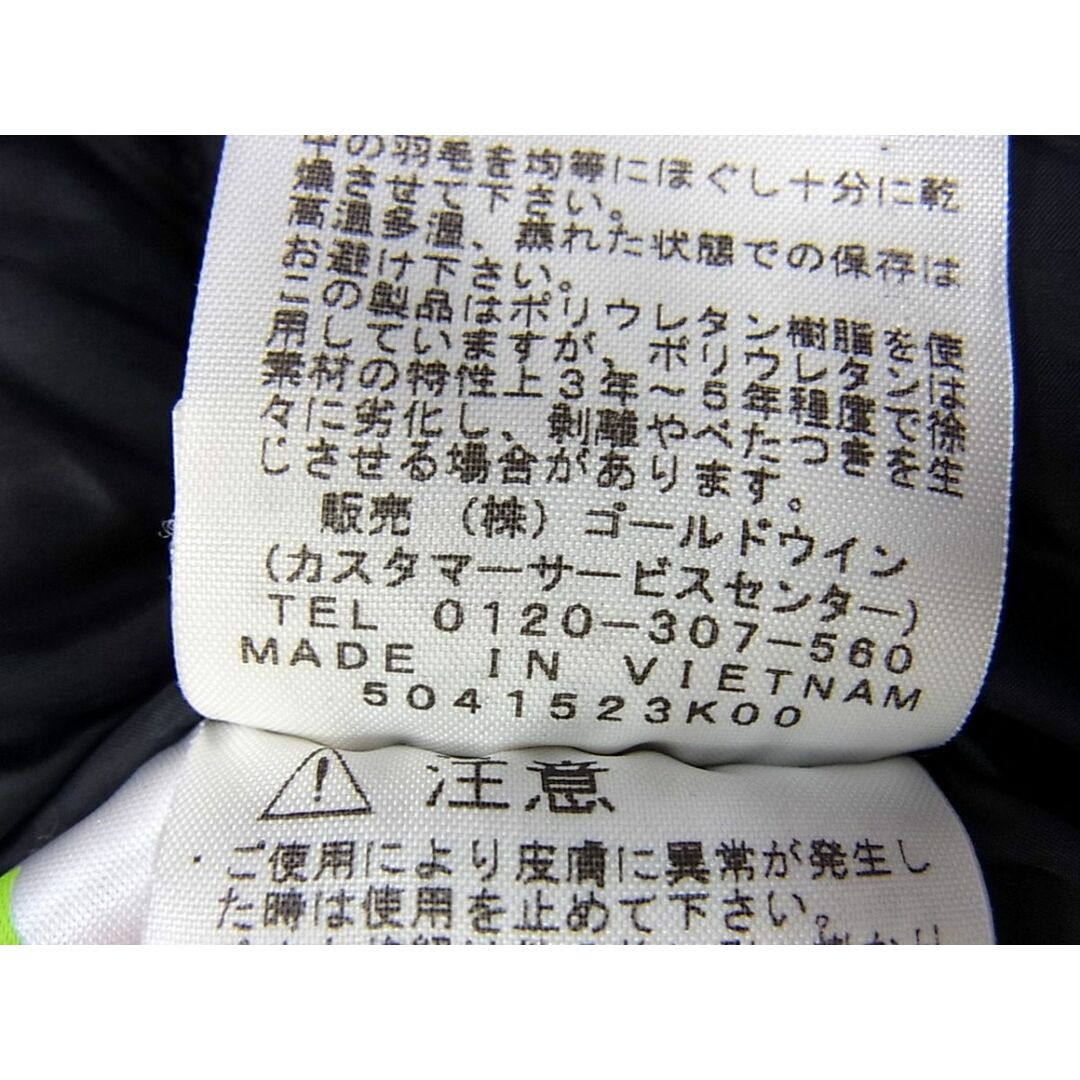 中の羽毛を均等にほぐし十分に乾
燥させて下さい。
高温多湿、蒸れた状態での保存は
お避け下さい。
この製品はポリウレタン樹脂を使
用していますが、ポリウレタンは
素材の特性上3年～5年程度で徐
々に劣化し、剥離やべたつきを生
じさせる場合があります。
販売 (株)ゴールドウイン
(カスタマーサービスセンター)
TEL 0120-307-560
MADE IN VIETNAM
5041523K00
注意
・ご使用により皮膚に異常が発生し
た時は使用を止めて下さい。